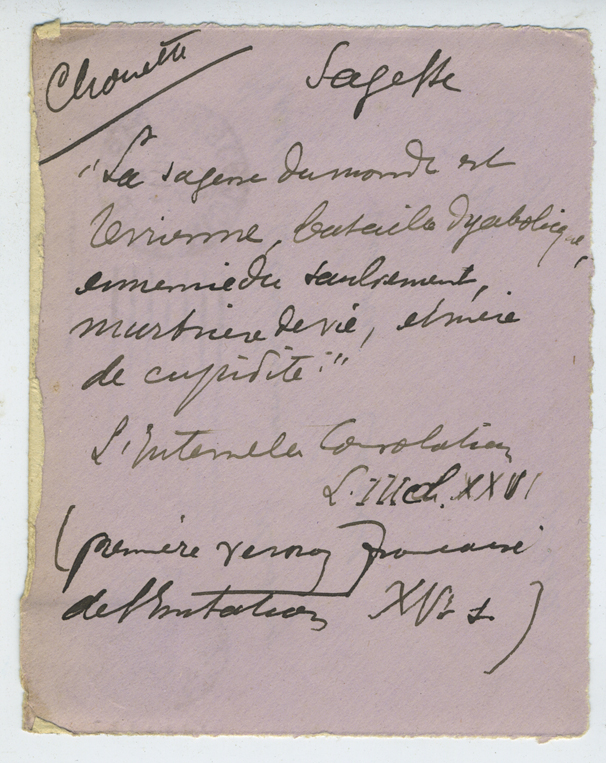 Chouette
Sagesse
"La sagesse du monde est
terrienne, bataille dyabolique,
ennemie du saulvement,
murtriere de vie, et mère
de cupidité."
L'Internelle Consolation
L. III ch. XXVI
(première version française
de l'Imitation XVe s.)